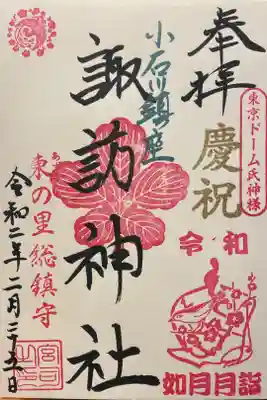 奉拝
慶祝
東京ドーム氏神様
令和
如月月詣
小石川鎮座
諏訪神社
東の里総鎮守
令和二年二月二十五日